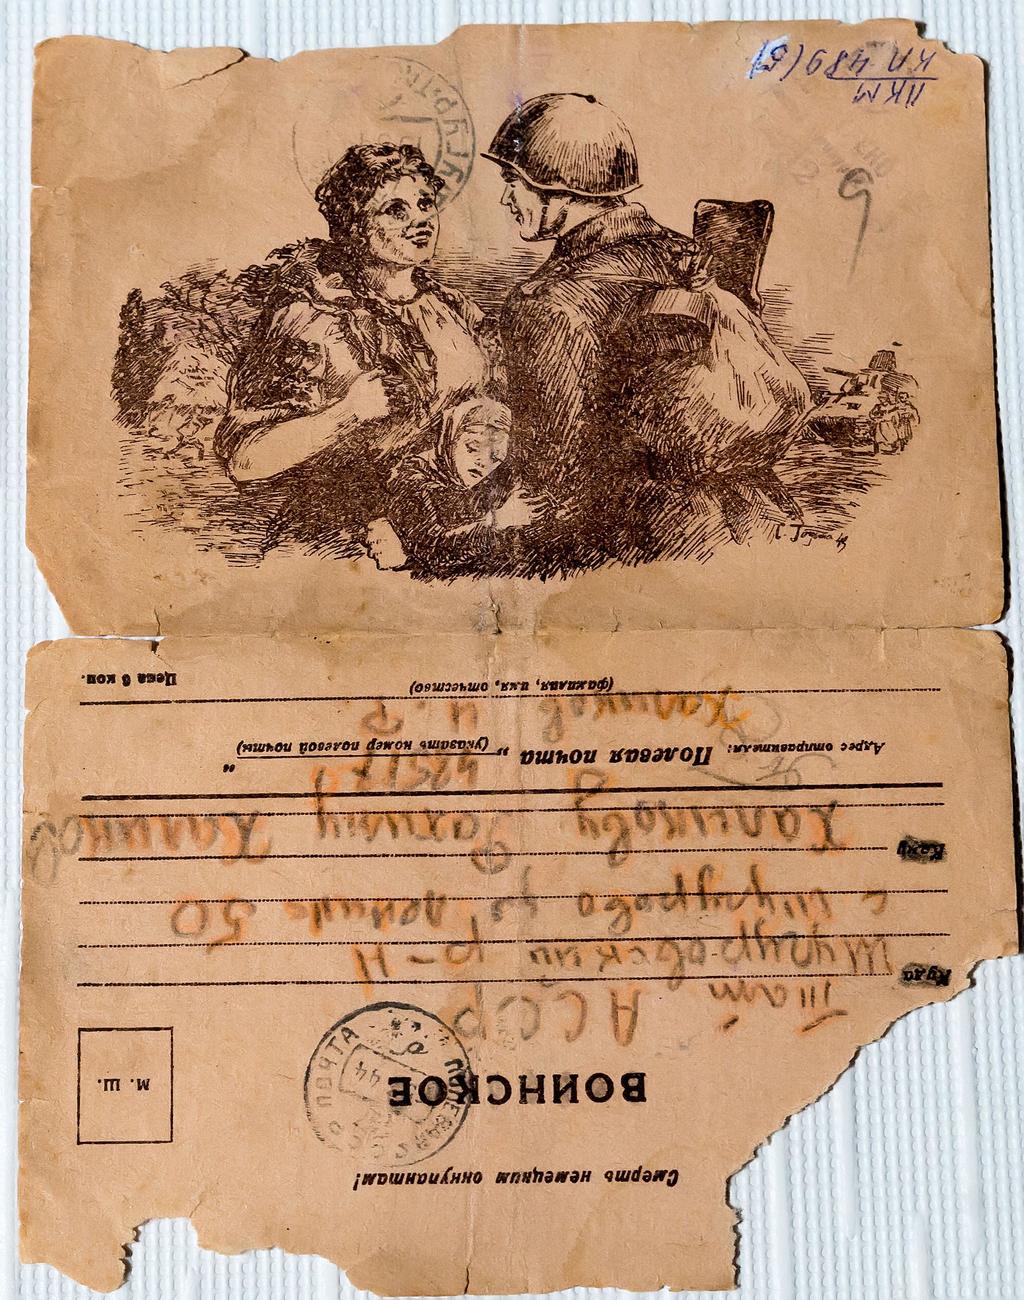 ПКМ
КП 489(5)
9
Смерть немецким оккупантам!
ВОИНСКОЕ
М. Ш.
ПОЛЕВАЯ ПОЧТА
44
Тат АССР
Куда Шугуровский р-н
с Шугурово ул Ленина 50
Кому
Халикову Рахиму Халиков
Адрес отправителя: Полевая почта „ “
(указать номер полевой почты)
Халиков
(фамилия, имя, отчество)
Цена 6 коп.